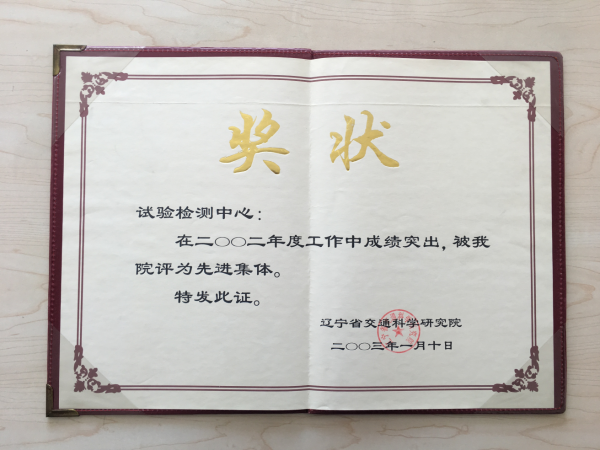 奖状
试验检测中心：
在二〇〇二年度工作中成绩突出，被我
院评为先进集体。
特发此证。
辽宁省交通科学研究院
二〇〇三年一月十日